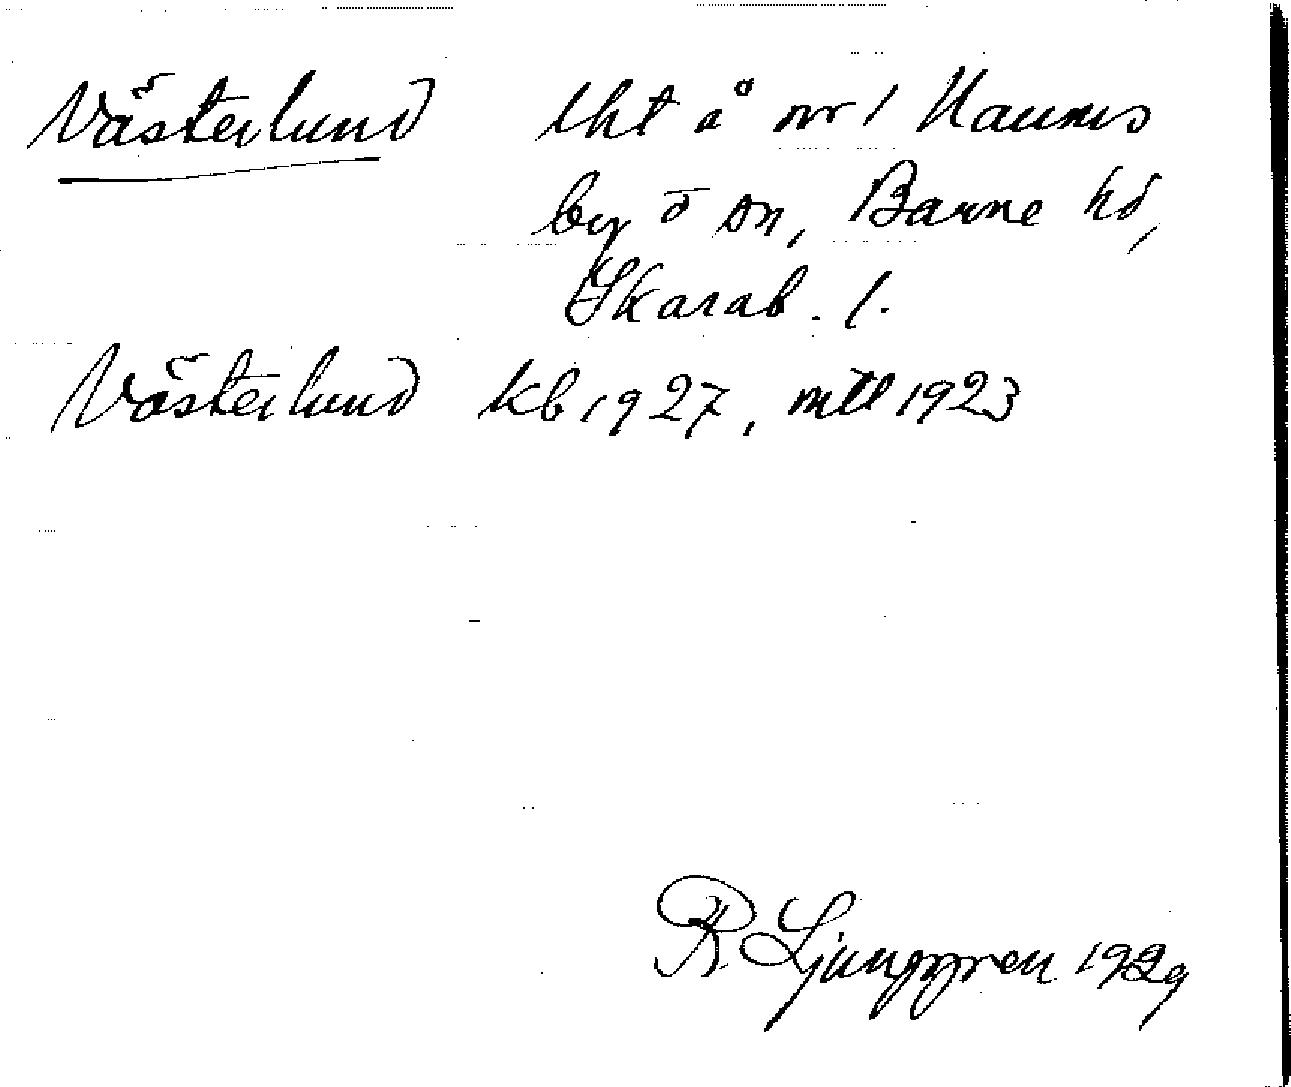 Västerlund lht å nr 1 Naums
by o sn, Barne hd,
Skarab. l.
Västerlund kb 1927, mtl 1923
R Ljunggren 1929